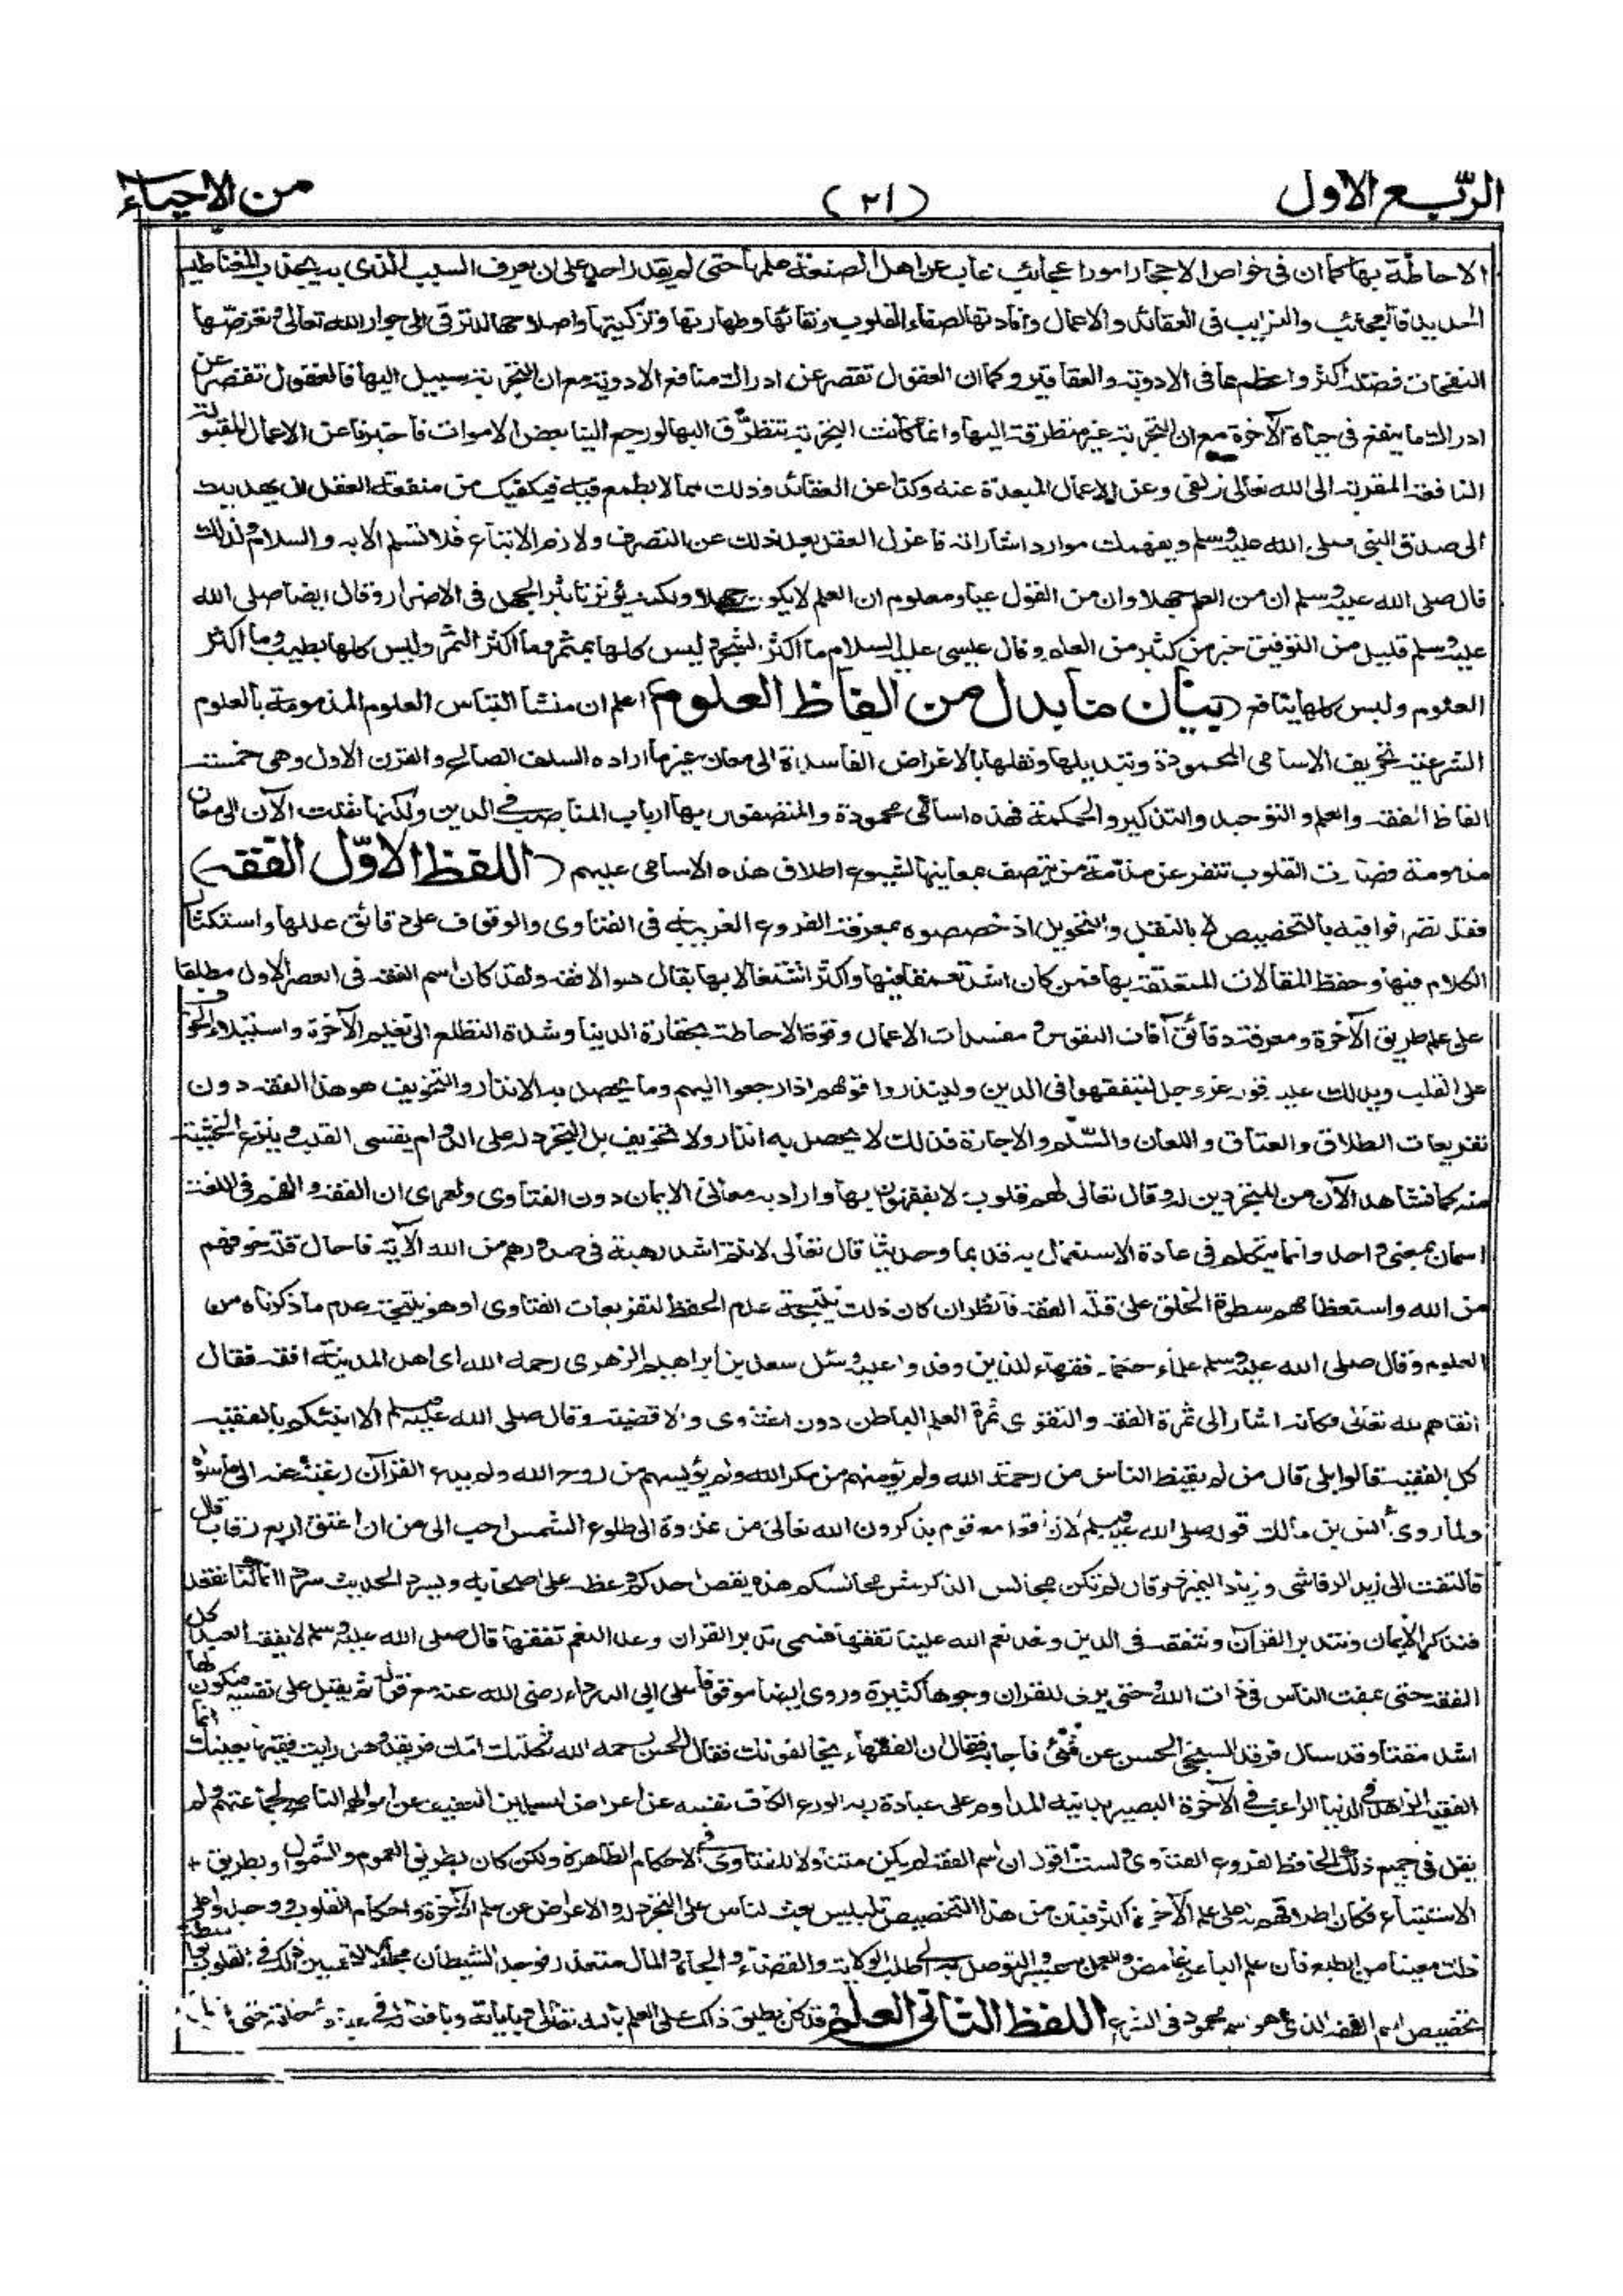 الربع الاول
(٢١)
من الاحياء
الاحاطة بها كما ان في خواص الاحجار امورا عجائب غاب عن اهل الصنعة علمها حتى لم يقدر احد على ان يعرف السبب الذي به يجذب المغناطيس
الحديد فالعجائب والغرايب في العقائد والاعمال وافادتها لصفاء القلوب ونقائها وطهارتها وتزكيتها واصلاحها للترقى الى جوار الله تعالى وتعرضها
النفحات فضله اكثر واعظم مما في الادوية والعقاقير وكما ان العقول تقصر عن ادراك منافع الادوية مع ان التجربة سبيل اليها فالعقول تقصر عن
ادراك ما ينفع في حياة الآخرة مع ان التجربة غير متطرقة اليها وانما كانت التجربة تتطرق اليها لو رجع الينا بعض الاموات فاخبرنا عن الاعمال المقبولة
النافعة المقربة الى الله تعالى زلفى وعن الاعمال المبعدة عنه وكذا عن العقائد وذلك مما لا يطمع فيه فيكفيك من منفعة العقل ان يهديك
الى صدق النبي صلى الله عليه وسلم ويفهمك موارد اشاراته فاعزل العقل بعد ذلك عن التصرف ولازم الاتباع فلا تسلم الا به والسلام ولذلك
قال صلى الله عليه وسلم ان من العلم جهلا وان من القول عيا ومعلوم ان العلم لا يكون جهلا ولكنه يؤثر تاثير الجهل في الاضرار وقال ايضا صلى الله
عليه وسلم قليل من التوفيق خير من كثير من العلم وقال عيسى عليه السلام ما اكثر الشجر وليس كلها بمثمر وما اكثر الثمر وليس كلها بطيب وما اكثر
العلوم وليس كلها بنافع (بيان ما بدل من الفاظ العلوم) اعلم ان منشا التباس العلوم المذمومة بالعلوم
الشرعية تحريف الاسامى المحمودة وتبديلها ونقلها بالاغراض الفاسدة الى معان غير ما اراده السلف الصالح والقرن الاول وهى خمسة
الفاظ الفقه والعلم والتوحيد والتذكير والحكمة فهذه اسامى محمودة والمتصفون بها ارباب المناصب في الدين ولكنها نقلت الآن الى معان
مذمومة فصارت القلوب تنفر عن مذمة من يتصف بمعانيها لشيوع اطلاق هذه الاسامى عليهم (اللفظ الاول الفقه)
فقد تصرفوا فيه بالتخصيص لا بالنقل والتحويل اذ خصصوه بمعرفة الفروع الغريبة في الفتاوى والوقوف على دقائق عللها واستكثار
الكلام فيها وحفظ المقالات المتعلقة بها فمن كان اشد تعمقا فيها واكثر اشتغالا بها يقال هو الافقه ولقد كان اسم الفقه في العصر الاول مطلقا
على علم طريق الآخرة ومعرفة دقائق آفات النفوس ومفسدات الاعمال وقوة الاحاطة بحقارة الدنيا وشدة التطلع الى نعيم الآخرة واستيلاء الخوف
على القلب ويدلك عليه قوله عز وجل ليتفقهوا في الدين ولينذروا قومهم اذا رجعوا اليهم وما يحصل به الانذار والتخويف هو هذا الفقه دون
تفريعات الطلاق والعتاق واللعان والسلم والاجارة فذلك لا يحصل به انذار ولا تخويف بل التجرد له على الدوام يقسى القلب وينزع الخشية
منه كما نشاهد الآن من المتجردين له وقال تعالى لهم قلوب لا يفقهون بها واراد به معانى الايمان دون الفتاوى ولعمرى ان الفقه والفهم في اللغة
اسمان بمعنى واحد وانما يتكلم في عادة الاستعمال به قديما وحديثا قال تعالى لانتم اشد رهبة في صدورهم من الله الآية فاحال قلة خوفهم
من الله واستعظامهم سطوة الخلق على قلة الفقه فانظر ان كان ذلك نتيجة عدم الحفظ لتفريعات الفتاوى او هو نتيجة عدم ما ذكرناه من
العلوم وقال صلى الله عليه وسلم علماء حكماء فقهاء للذين وفدوا عليه وسئل سعد بن ابراهيم الزهرى رحمه الله اى اهل المدينة افقه فقال
اتقاهم لله تعالى فكانه اشار الى ثمرة الفقه والتقوى ثمرة العلم الباطن دون الفتاوى والاقضية وقال صلى الله عليه وسلم الا انبئكم بالفقيه
كل الفقيه قالوا بلى قال من لم يقنط الناس من رحمة الله ولم يؤمنهم من مكر الله ولم يؤيسهم من روح الله ولم يدع القرآن رغبة عنه الى ما سواه
ولما روى انس بن مالك قوله صلى الله عليه وسلم لان اقعد مع قوم يذكرون الله تعالى من غدوة الى طلوع الشمس احب الى من ان اعتق اربع رقاب قال
فالتفت الى زيد الرقاشى وزياد النميرى وقال لم تكن مجالس الذكر مثل مجالسكم هذه يقص احدكم وعظه على اصحابه ويسرد الحديث سردا انما كنا نقعد
فنذكر الايمان ونتدبر القرآن ونتفقه في الدين ونعد نعم الله علينا تفقها فسمى تدبر القران وعد النعم تفقها قال صلى الله عليه وسلم لا يفقه العبد كل
الفقه حتى يمقت الناس في ذات الله وحتى يرى للقران وجوها كثيرة وروى ايضا موقوفا على ابى الدرداء رضى الله عنه مع قوله ثم يقبل على نفسه فيكون لها
اشد مقتا وقد سال فرقد السبخى الحسن عن شئ فاجابه فقال ان الفقهاء يخالفونك فقال الحسن رحمه الله ثكلتك امك فريقد وهل رايت فقيها بعينك انما
الفقيه الزاهد في الدنيا الراغب في الآخرة البصير بدينه المداوم على عبادة ربه الورع الكاف نفسه عن اعراض المسلمين العفيف عن اموالهم الناصح لجماعتهم ولم
يقل في جميع ذلك الحافظ لفروع الفتاوى ولست اقول ان اسم الفقه لم يكن متناولا للفتاوى في الاحكام الظاهرة ولكن كان بطريق العموم والشمول او بطريق
الاستتباع فكان اطلاقهم له على علم الآخرة اكثر فبان من هذا التخصيص تلبيس بعث الناس على التجرد له والاعراض عن علم الآخرة واحكام القلوب ووجدوا على
ذلك معينا من الطبع فان علم الباطن غامض والعمل به عسير والتوصل به الى طلب الولاية والقضاء والجاه والمال متعذر فوجد الشيطان مجالا لتحسين ذلك في القلوب بواسطة
تخصيص اسم الفقه الذى هو اسم محمود في الشرع اللفظ الثانى العلم وقد كان يطلق ذلك على العلم بالله تعالى وبآياته وبافعاله في عباده وخلقه حتى